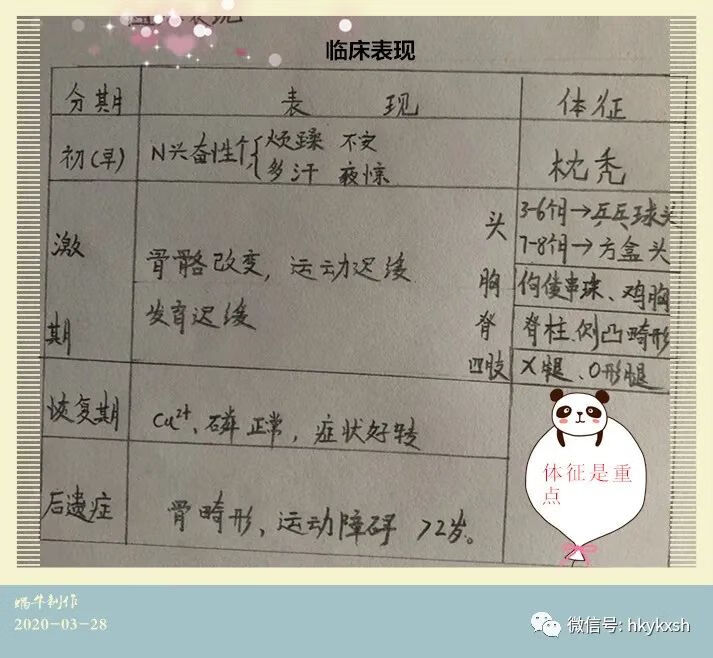 表现
临床表现
分期 表 现 体征
初(早) N兴奋性个 烦躁 不安
多汗 夜惊
枕秃
激期
骨骼改变, 运动迟缓
发育迟缓
头 3-6个月→乒乓球头
7-8个月→方盒头
胸 佝偻串珠、鸡胸
脊 脊柱侧凸畸形
四肢 X腿、O形腿
恢复期 Ca²⁺、磷正常, 症状好转
体征是重
点
后遗症 骨畸形、运动障碍 >2岁。
蜗牛制作
2020-03-28
微信号: hkykxsh